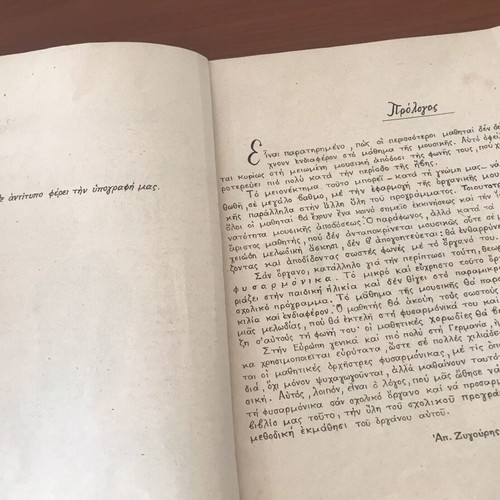 ἀντίτυπο φέρει τὴν ὑπογραφή μας.
Πρόλογος
Εἶναι παρατηρημένο, πὼς οἱ περσσότεροι μαθηταὶ δὲν δεί
χνουν ἐνδιαφέρον στὸ μάθημα τῆς μουσικῆς. Αὐτὸ ὀφεί
ται κυρίως στὴ μειωμένη μουσικὴ ἀπόδοσι τῆς φωνῆς τους, ποὺ χ
ροτερεύει πιὸ πολὺ κατὰ τὴν περίοδο τῆς ἥβης.
Τὸ μειονέκτημα τοῦτο μπορεῖ – κατὰ τὴ γνώμη μας – νὰ
θωθῆ, σὲ μεγάλο βαθμό, μὲ τὴν ἐφαρμογὴ τῆς ὀργανικῆς μου
κῆς παράλληλα στὴν ἄλλη ὕλη τοῦ προγράμματος. Τοιουτοτ
ὅλοι οἱ μαθηταὶ θὰ ἔχουν ἕνα κοινὸ σημεῖο ἐκκινήσεως καὶ τὴν ἴδ
νατότητα μουσικῆς ἀποδόσεως. Ὁ παράφωνος, ἀλλὰ κατὰ τὰ
ἄριστος μαθητής, ποὺ δὲν ἀνταποκρίνεται μουσικῶς οὔτε σὲ
χειώδη μελωδικὴ ἄσκησι, δὲν θ' ἀπογοητεύεται· θὰ ἐνθαρρύνε
ζοντας καὶ ἀποδίδοντας σωστὲς φωνὲς μὲ τὸ ὄργανό του.
Σὰν ὄργανο, κατάλληλο γιὰ τὴν περίπτωσι τούτη, θεωρ
φυσαρμόνικα. Τὸ μικρὸ καὶ εὔχρηστο τοῦτο ὄργ
ριάζει στὴν παιδικὴ ἡλικία καὶ δὲν ἐνδίδει στὸ παραμικρ
σχολικὸ πρόγραμμα. Τὸ μάθημα τῆς μουσικῆς θὰ παρο
κιλία καὶ ἐνδιαφέρον. Ὁ μαθητὴς θὰ ἀκούη τοὺς σωστοὺς
μιᾶς μελωδίας, ποὺ θὰ ἐκτελῆ στὴ φυσαρμόνικά του καὶ
ζη σ' αὐτοὺς τὴ φωνή του· οἱ μαθητικὲς χορωδίες θὰ
Στὴν Εὐρώπη γενικὰ καὶ πιὸ πολὺ στὴ Γερμανία,
κα χρησιμοποιεῖται εὐρύτατα, ὥστε σὲ πολλὲς χιλιάδ
ται οἱ μαθητικὲς ὀρχῆστρες φυσαρμόνικας, μὲ τὶς ὁπ
διά, ὄχι μόνον ψυχαγωγοῦνται, ἀλλὰ μαθαίνουν ταυτό
σική. Αὐτός, λοιπόν, εἶναι ὁ λόγος, ποὺ μᾶς ὤθησε νὰ
τὴ φυσαρμόνικα σὰν σχολικὸ ὄργανο καὶ νὰ προσαρ
βιβλίο μας τοῦτο, τὴν ὕλη τοῦ σχολικοῦ προγρά
μεθοδικὴ ἐκμάθησι τοῦ ὀργάνου αὐτοῦ.
Ἀπ. Ζυγούρης